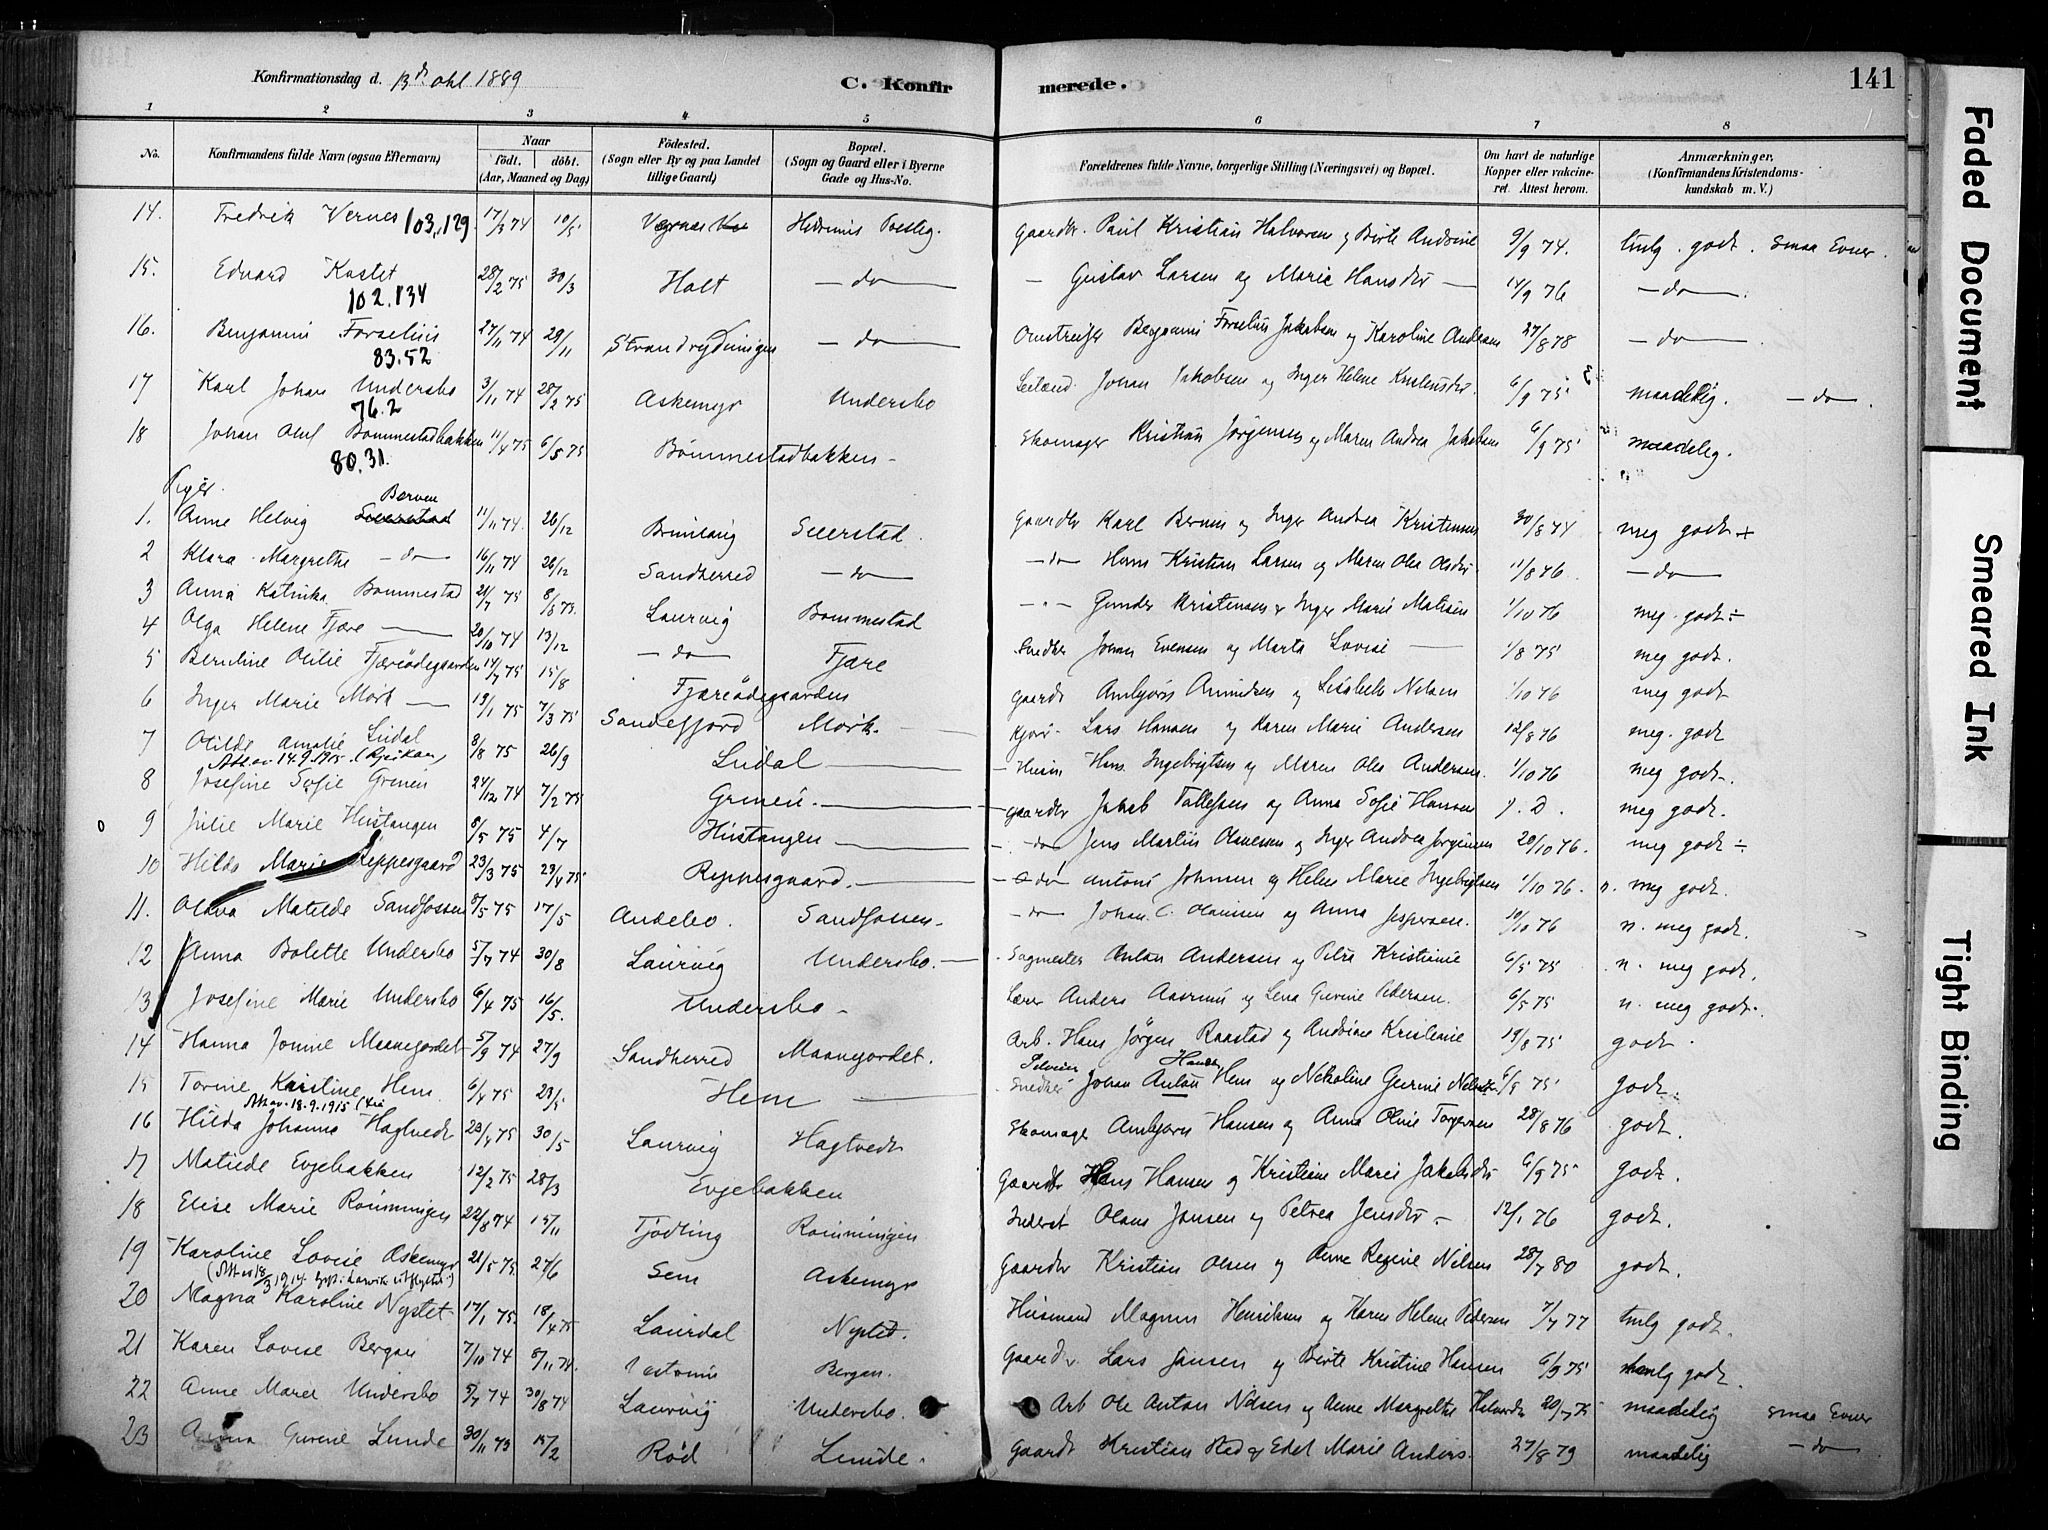 Konfirmationsdag d. 13de okt 1889
C. Konfirmerede.
141
1 2 3 4 5 6 7 8
No.
Konfirmandens fulde Navn (ogsaa Efternavn)
Naar
födt. döbt.
(Aar, Maaned og Dag)
Födested.
(Sogn eller By og paa Landet
tillige Gaard)
Bopæl.
(Sogn og Gaard eller i Byerne
Gade og Hus-No.
Forældrenes fulde Navne, borgerlige Stilling (Næringsvei) og Bopæl.
Om havt de naturlige
Kopper eller vakcine-
ret. Attest herom.
Anmærkninger.
(Konfirmandens Kristendoms-
kundskab m. V.)
14. Fredrik Vernes 103.129. 17/3 74 10/5 Gaardbr. Paul Kristian Halvorsen og Birte Andrine 9/9 74. godt. smaa Evner.
15. Edvard Kostet 28/2 75 30/3 Holt — do — Gustav Larsen og Marie Hansdr — 14/9 76 — do —.
102.134
16. Benjamin Forselius 27/11 74 29/11 — do — Benjamin Forselius Jakobsen og Karoline Andersen 27/8 78 — do —
83.52
17 Karl Johan Undersbo 3/11 74 28/2 75 Askemyr Undersbo Johan Jakobsen og Inger Helene 6/9 75 maadelig. — do —.
76.2
18 Johan Oluf Bommestadbakken 11/4 75 6/5 75 Bommestadbakken - Skomager Kristian Jörgensen og Maren Andrea Jakobsen 6/9 75 maadelig.
80.31.
Piger.
Berven
1. Anne Helvig Seierstad 11/11 74. 26/12 Brunlang Seierstad. Gaardbr Karl Berven og Inger Andrea Kristensen 30/8 74 meg godt +
2 Klara Margrethe — do — 16/11 74 26/12 Sandherred — do — — do Hans Kristian Larsen og Maren Olea Olsdr. 11/8 76. — do —
3 Anna Katinka Bommestad 21/7 75 8/8 75. Laurvig Bommestad — " — Gunder Kristensen & Inger Marie Matisen 1/10 76 meg. godt ÷
4 Olga Helene Fjære — 20/10 74 13/12 — do — Fjære Snedker Johan Evensen og Marta Lovise — 1/8 75 meg godt.
5 Berntine Otilie Fjæreödegaarden 14/7 75 15/8 Fjæreödegaarden Gaardb Anbjörn Amundsen og Lisabeth Nilsen 1/10 76 meg godt
6 Inger Marie Mörk — 19/1 75 7/3 75 Sandefjord Mörk. Lars Hansen og Karen Marie Andersen 12/8 76 meg. godt
7 Otilde Amalie Ludal 8/8 75 26/9 Ludal — Husm Hans Ingebrigtsen og Maren Olea Andersen. 1/10 76 meg godt.
Att. av 14.9.1915. (Rjukan)
8 Josefine Sofie Grinen 24/12 74 7/2 75 Grinen. — gaardbr Jakob Tallefsen og Anna Sofie Hansen meg godt.
9 Julie Marie Hustangen 8/5 75 4/7 Hustangen — do Jens Martin Olavesen og Inger Andrea Jörgensen 20/10 76. meg godt ÷
10 Hilda Marie Reppesgaard 23/3 75 23/4 75 Reppesgaard. — do Anton Johnsen og Helene Marie Ingebrigtsen 1/10 76. n. meg godt.
11. Olava Matilde Sandfossen 8/5 75 17/5 Andebo. Sandfossen. — do Johan C. Olavesen og Anna Jespersen. 10/10 76 n. meg godt.
12 Anna Bolette Undersbo 5/7 74 30/8 Laurvig Undersbo. — Sagmester Anton Andersen og Petra Kristiane 6/5 75 n. meg godt.
13 Josefine Marie Undersbo 6/4 75 16/5. Undersbo - Lærer Anders Aasrum og Lena Gurine Pedersen. 6/5 75 n. meg godt.
14 Hanna Jonine Maanejordet 5/9 74 27/9 Sandherred Maanejordet. Arb. Hans Jörgen Raastad og Andrine Kristiane 19/8 75 godt.
15 Torine Karstine Hem 6/4 75 23/5 Hem — Snedker Johan Anton Hem og Nikoline Gurine Nilsen 6/9 75 godt.
Att. av. 18.9.1915
16 Hilda Johanne Hagtvedt 23/4 75 30/5 Laurvig Hagtvedt Skomager Anbjörn Hansen og Anna Olvie Torgersen 28/8 76 godt.
17 Matilde Evjebakken 12/2 75 28/3 Evjebakken Gaardbr Hans Hansen og Kristiane Marie Jakobsdr 6/9 75 godt.
18 Elise Marie Römmingen 22/8 74 15/11 Tjödling Römmingen Inderst Olaus Jansen og Petrea Jensdr - 12/1 76 godt.
19 Karoline Lovise Askemyr 21/5 75 27/6 Sem Askemyr Gaardbr Kristian Olsen og Anne Regine Nilsen 28/7 80 godt.
20 Magna Karoline Nystet 17/1 75. 18/4 75 Laurdal Nystet. Husmand Magnus Henriksen og Karen Helene Pedersen 7/7 77 godt.
21 Karen Lovise Bergan 7/10 74 8/11 74. Bergan. Gaardbr Lars Jansen og Birte Kristine Hansen 6/9 75 godt.
22 Anne Marie Undersbo 5/7 74 30/8 74 Laurvig Undersbo. Arb Ole Anton Nilsen og Anne Margrethe Halvorsdr 20/7 75 maadelig smaa Evner
23 Anna Gurine Lunde 30/11 73 15/2 Röd Lunde. Gaardb Kristian Röd og Edel Marie Anders. 27/8 79 maadelig — do —
Faded Document
Smeared Ink
Tight Binding